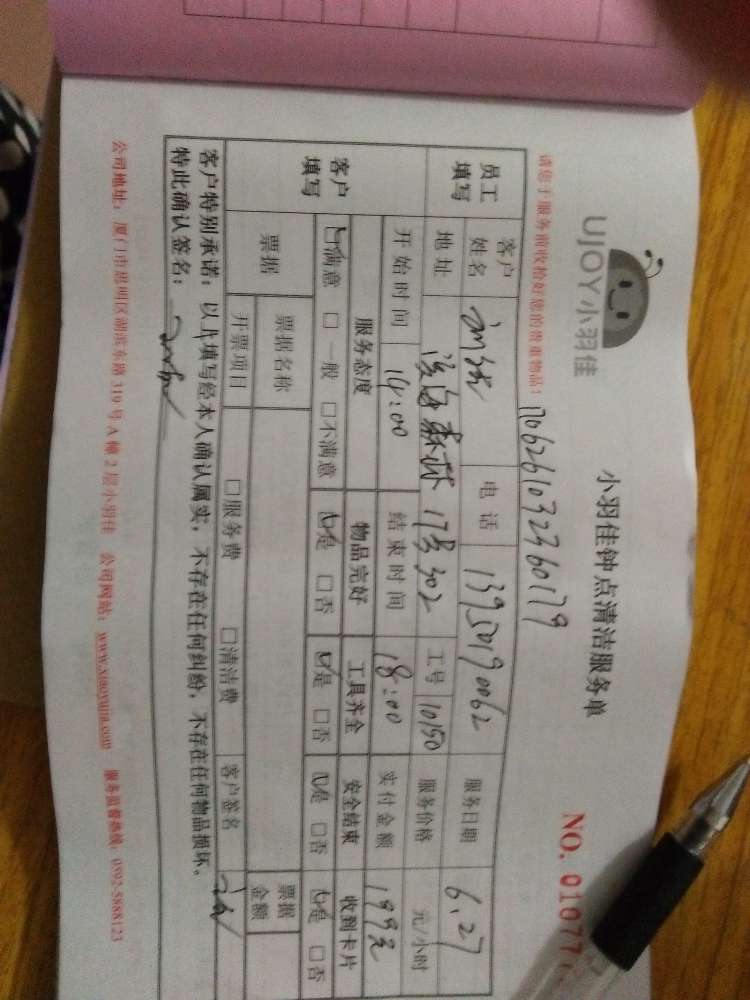 UJOY小羽佳
小羽佳钟点清洁服务单
NO. 01077
请您于服务前收拾好您的贵重物品！
1706261032360179
员工填写 客户姓名 电话 13950190062 服务日期 6.27
地址 17号302 工号 10150 服务价格 元/小时
客户填写 开始时间 14:00 结束时间 18:00 实付金额 199元
服务态度 物品完好 工具齐全 安全结束 收到卡片
☑满意 □一般 □不满意 ☑是 □否 ☑是 □否 ☑是 □否 ☑是 □否
票据 票据名称 票据金额
开票项目 □服务费 □清洁费 客户签名
客户特别承诺：以上填写经本人确认属实，不存在任何纠纷，不存在任何物品损坏。
特此确认签名：
公司地址：厦门市思明区湖滨东路319号A幢2层小羽佳 公司网站：www.xiaoyujia.com 服务监督热线：0592-5888123